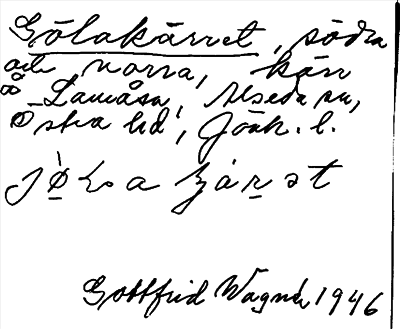 Gölakärret, södra
och norra, kärr
å Lamåsa, Alseda sn,
Östra hd, Jönk. l.
Gottfrid Wagnér 1946